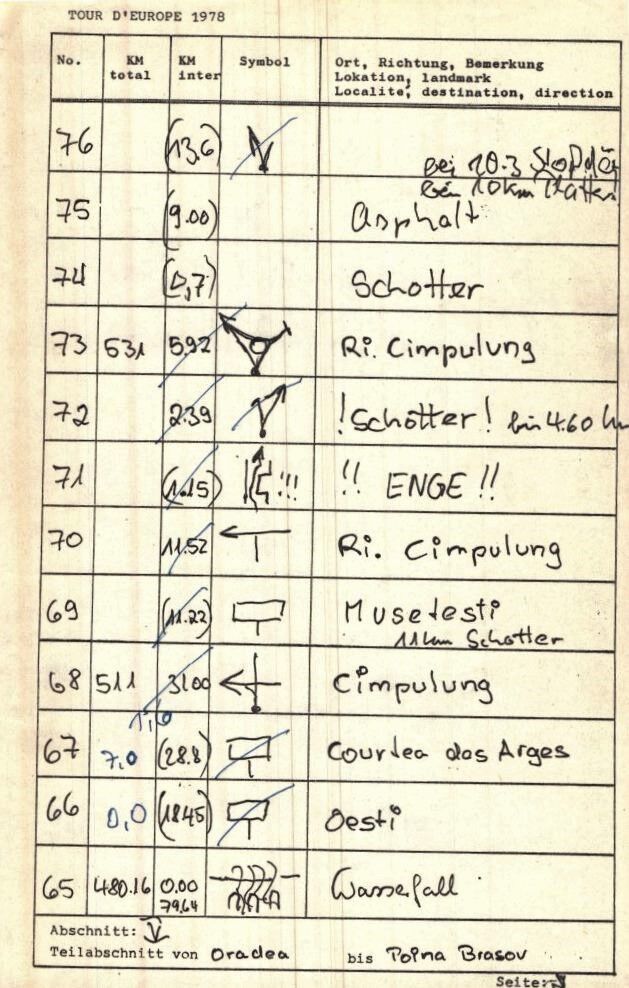 TOUR D'EUROPE 1978
No. KM total KM inter Symbol Ort, Richtung, Bemerkung
Lokation, landmark
Localite, destination, direction
76 (13,6) bei 10.3
bei 10km
75 (9.00) Asphalt
74 (0,7) Schotter
73 531 5.92 Ri. Cimpulung
72 2.39 !Schotter! bis 4.60 km
71 (1.15) !!! !! ENGE !!
70 11.52 Ri. Cimpulung
69 (11.22) Musetesti
11km Schotter
68 511 31.00 Cimpulung
1,6
67 7,0 (28.8) Courtea das Arges
66 0,0 (18.45) Oesti
65 480.16 0.00 Wasserfall
79,64
Abschnitt: V
Teilabschnitt von Oradea bis Poina Brasov
Seite: